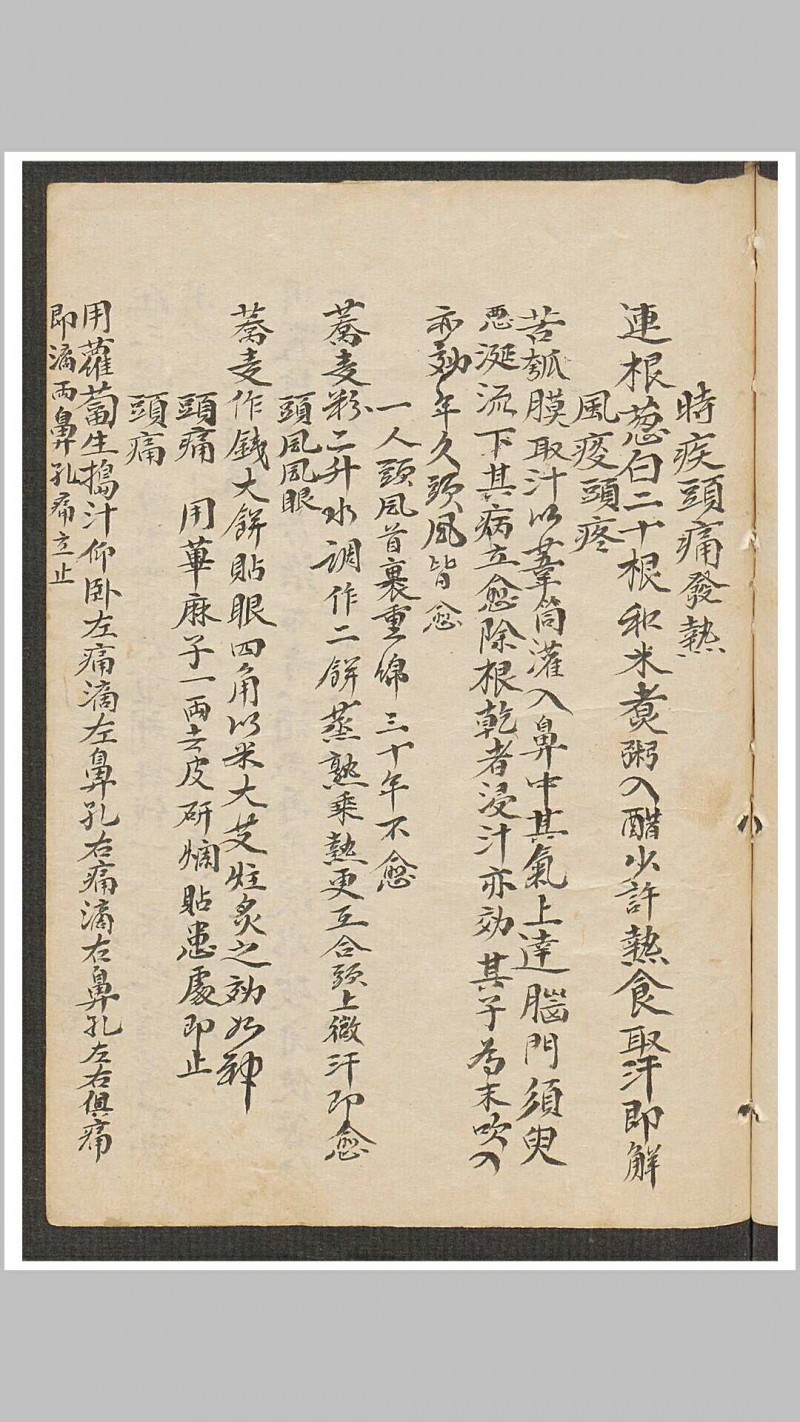 時疾頭痛發熱
連根葱白二十根和米煮粥入醋少許熱食取汗即解
風痰頭疼
苦瓠膜取汁以葦筒灌入鼻中其氣上逹腦門須臾
恶涎流下其病立愈除根乾者浸汁亦効其子為末吹入
亦効年久頭風皆愈
一人頭風首裹重綿三十年不愈
蕎麦粉二升水調作二餅蒸熟乘熱更互合頭上微汗即愈
頭风风眼
蕎麦作錢大餅貼眼四角以米大艾炷炙之効如神
頭痛 用蓽麻子一兩去皮研爛貼患處即止
頭痛
用蘿蔔生搗汁仰卧左痛滴左鼻孔右痛滴右鼻孔左右俱痛
即滴两鼻孔痛立止